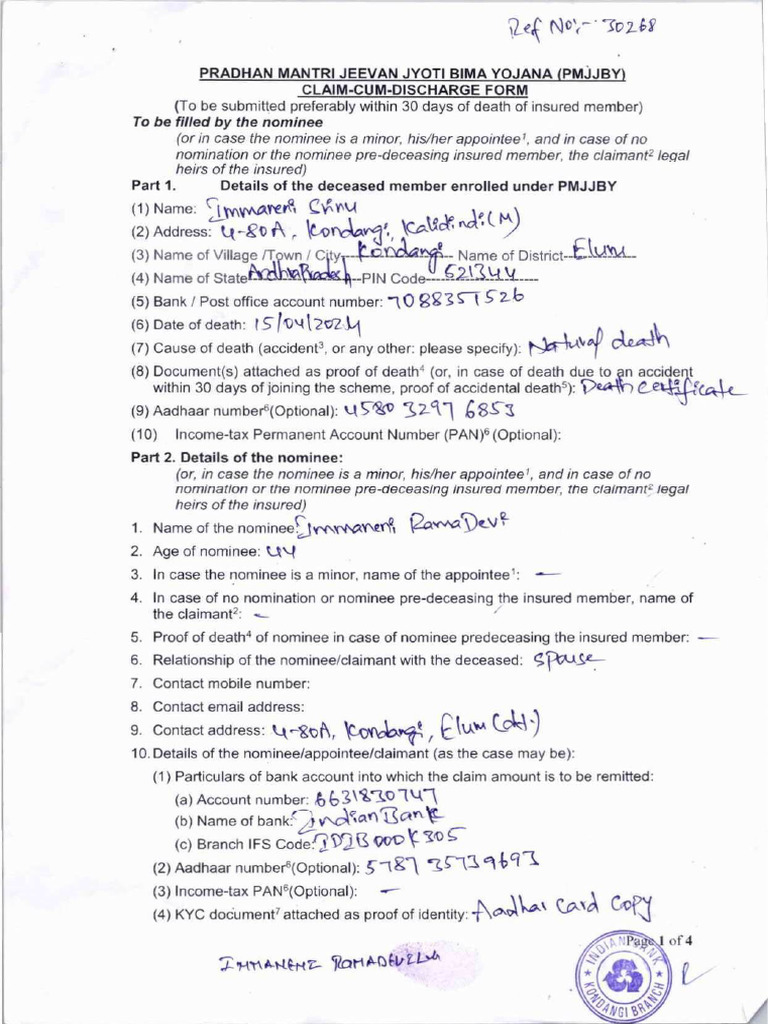 Ref No:- 30268
PRADHAN MANTRI JEEVAN JYOTI BIMA YOJANA (PMJJBY)
CLAIM-CUM-DISCHARGE FORM
(To be submitted preferably within 30 days of death of insured member)
To be filled by the nominee
(or in case the nominee is a minor, his/her appointee¹, and in case of no
nomination or the nominee pre-deceasing insured member, the claimant² legal
heirs of the insured)
Part 1. Details of the deceased member enrolled under PMJJBY
(1) Name: Immaneni Srinu
(2) Address: 4-80A, Kondangi, Kalidindi(M)
(3) Name of Village /Town / City---Kondangi--- Name of District--Eluru---
(4) Name of State Andhra Pradesh--PIN Code---521344---
(5) Bank / Post office account number: 7088351526
(6) Date of death: 15/04/2024
(7) Cause of death (accident³, or any other: please specify): Natural death
(8) Document(s) attached as proof of death⁴ (or, in case of death due to an accident
within 30 days of joining the scheme, proof of accidental death⁵): Death certificate
(9) Aadhaar number⁶(Optional): 4580 3297 6853
(10) Income-tax Permanent Account Number (PAN)⁶ (Optional):
Part 2. Details of the nominee:
(or, in case the nominee is a minor, his/her appointee¹, and in case of no
nomination or the nominee pre-deceasing insured member, the claimant² legal
heirs of the insured)
1. Name of the nominee: Immaneni RamaDevi
2. Age of nominee: 44
3. In case the nominee is a minor, name of the appointee¹: —
4. In case of no nomination or nominee pre-deceasing the insured member, name of
the claimant²: -
5. Proof of death⁴ of nominee in case of nominee predeceasing the insured member: —
6. Relationship of the nominee/claimant with the deceased: spouse
7. Contact mobile number:
8. Contact email address:
9. Contact address: 4-80A, Kondangi, Eluru (dt.)
10. Details of the nominee/appointee/claimant (as the case may be):
(1) Particulars of bank account into which the claim amount is to be remitted:
(a) Account number: 6631830747
(b) Name of bank: Indian Bank
(c) Branch IFS Code: IDIB000K305
(2) Aadhaar number⁶(Optional): 5787 3573 9693
(3) Income-tax PAN⁶(Optional): —
(4) KYC document⁷ attached as proof of identity: Aadhar Card Copy
Page 1 of 4
INDIAN BANK
KONDANGI BRANCH